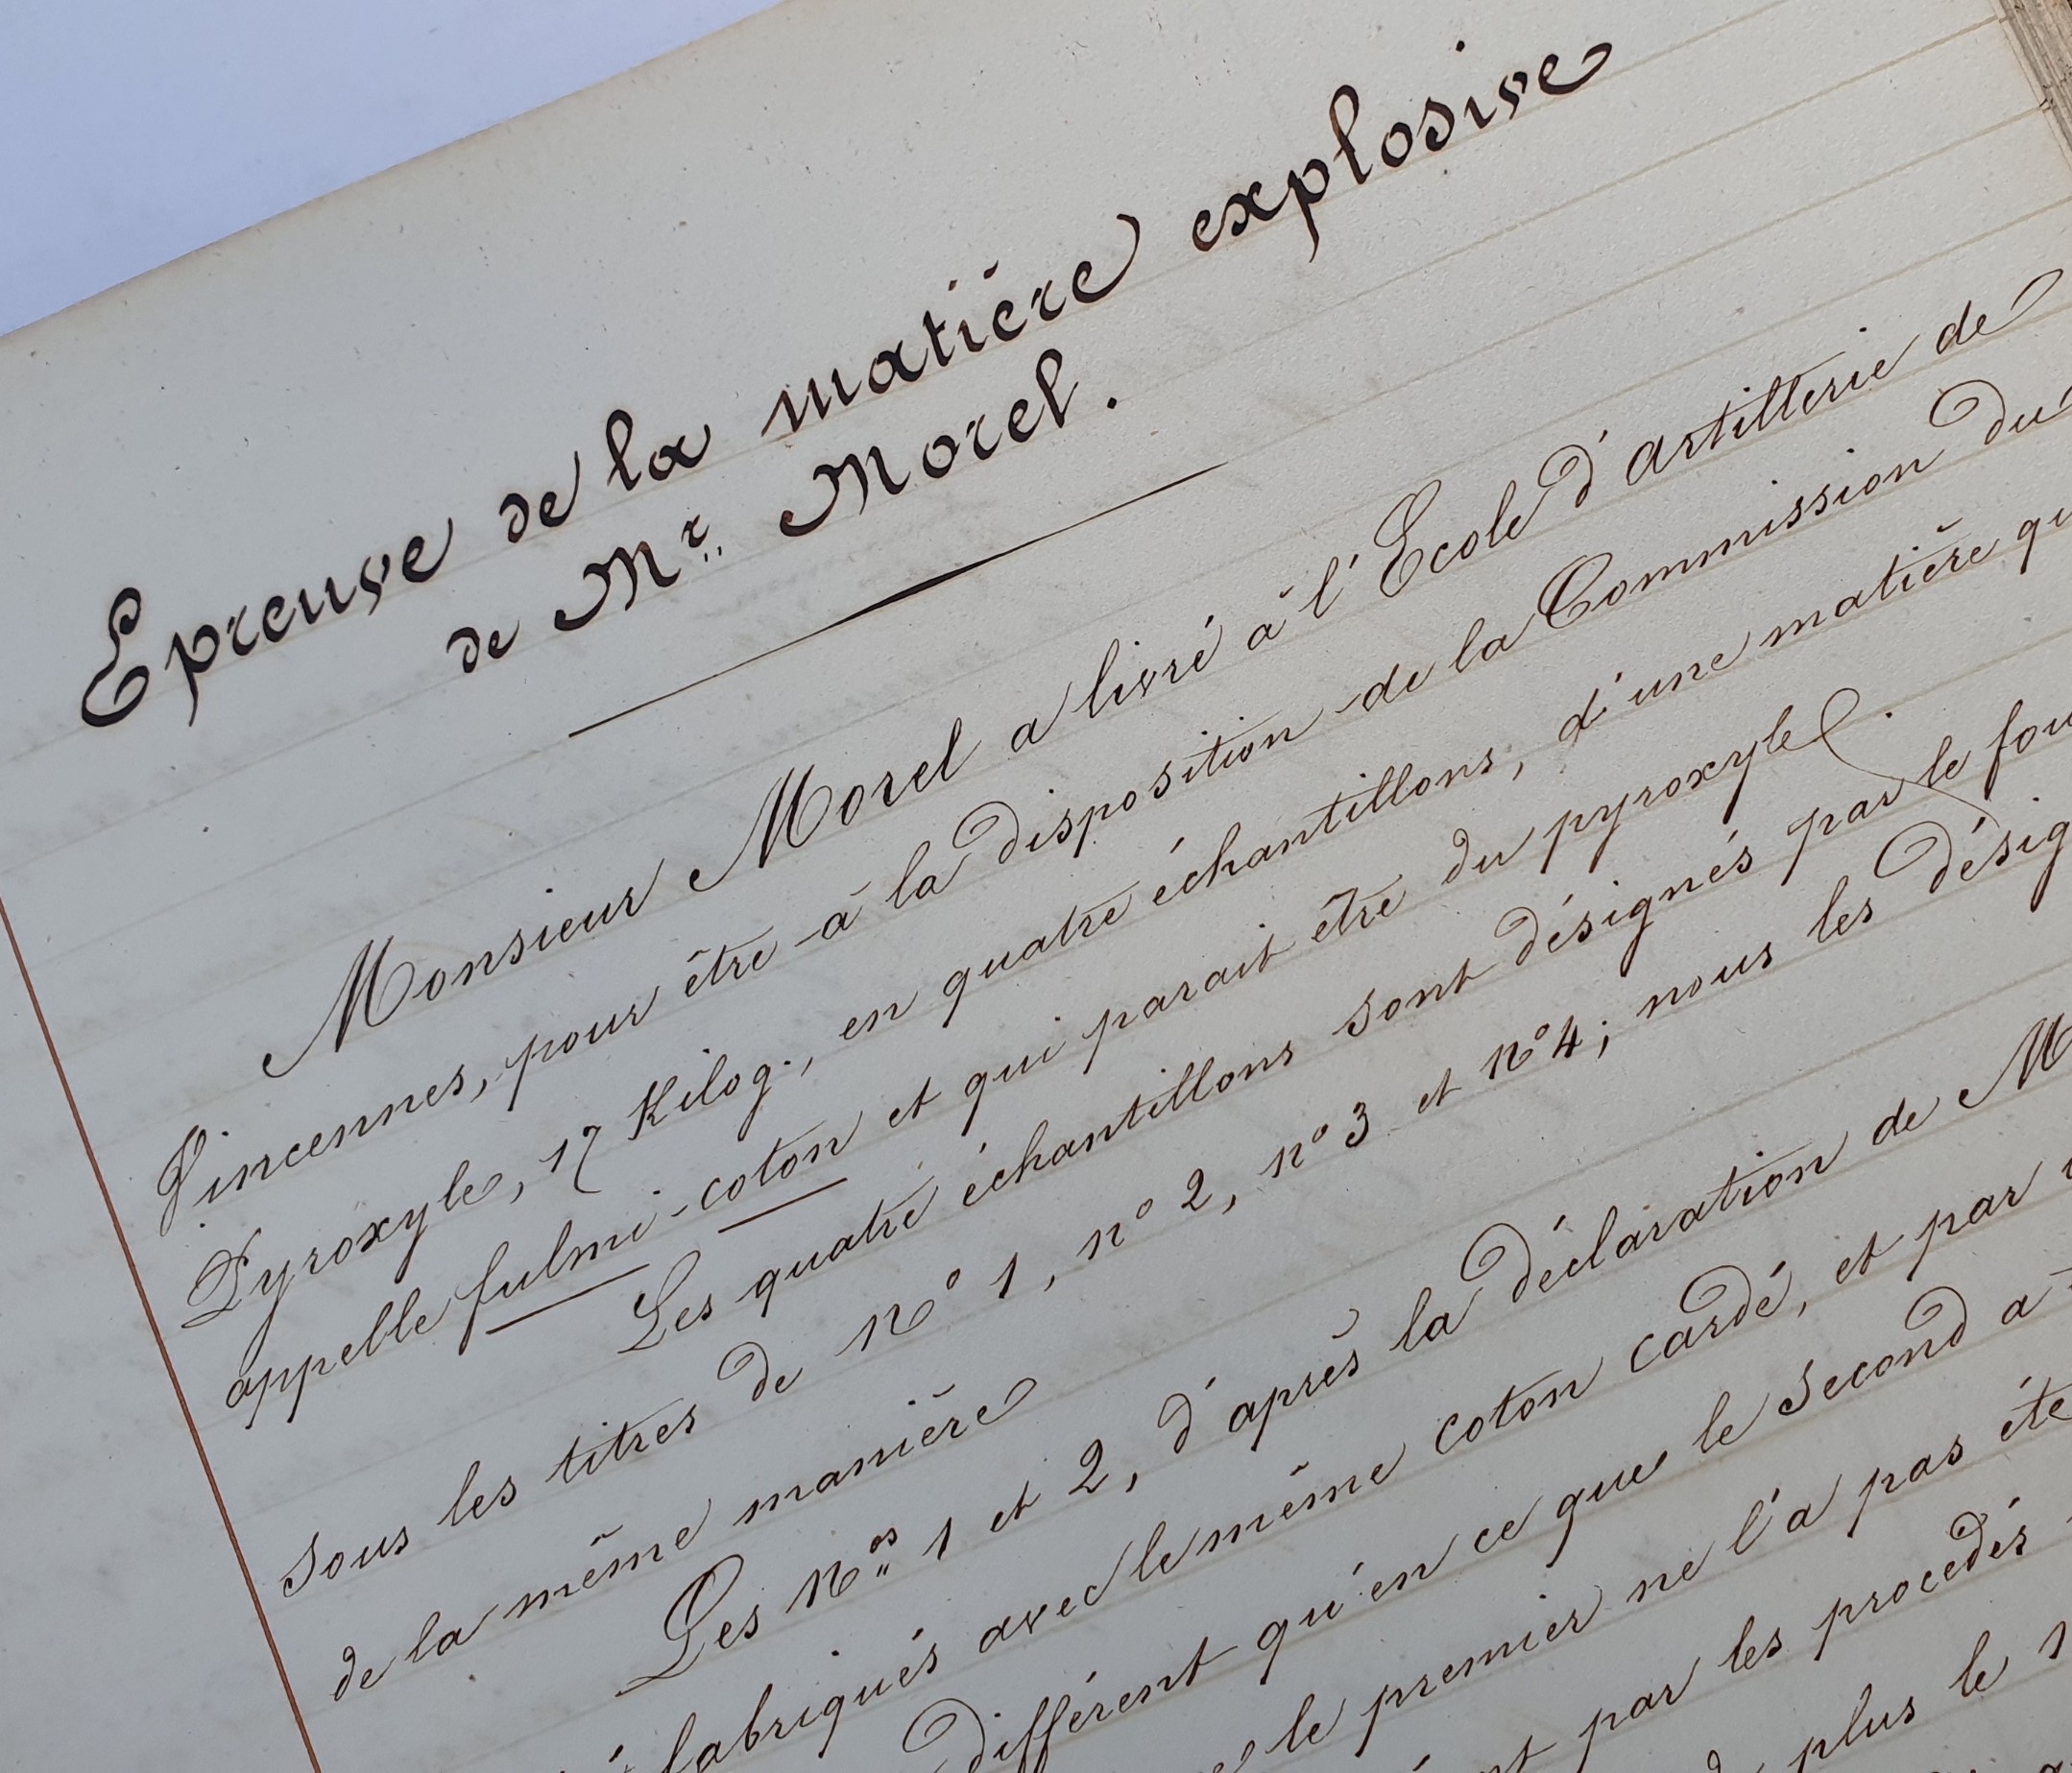 Epreuve de la matière explosive
de Mr. Morel.
Monsieur Morel a livré à l'Ecole d'artillerie de
Vincennes, pour être à la disposition de la Commission du
Pyroxyle, 17 Kilog., en quatre échantillons, d'une matière qu
appelle fulmi-coton et qui parait être du pyroxyle.
Les quatre échantillons sont désignés par le fou
sous les titres de No 1, no 2, no 3 et No 4; nous les désig
de la même manière
Les Nos 1 et 2, d'après la déclaration de M
fabriqués avec le même coton cardé, et par
différent qu'en ce que le second a
le premier ne l'a pas éte
par les procedés
plus le 1